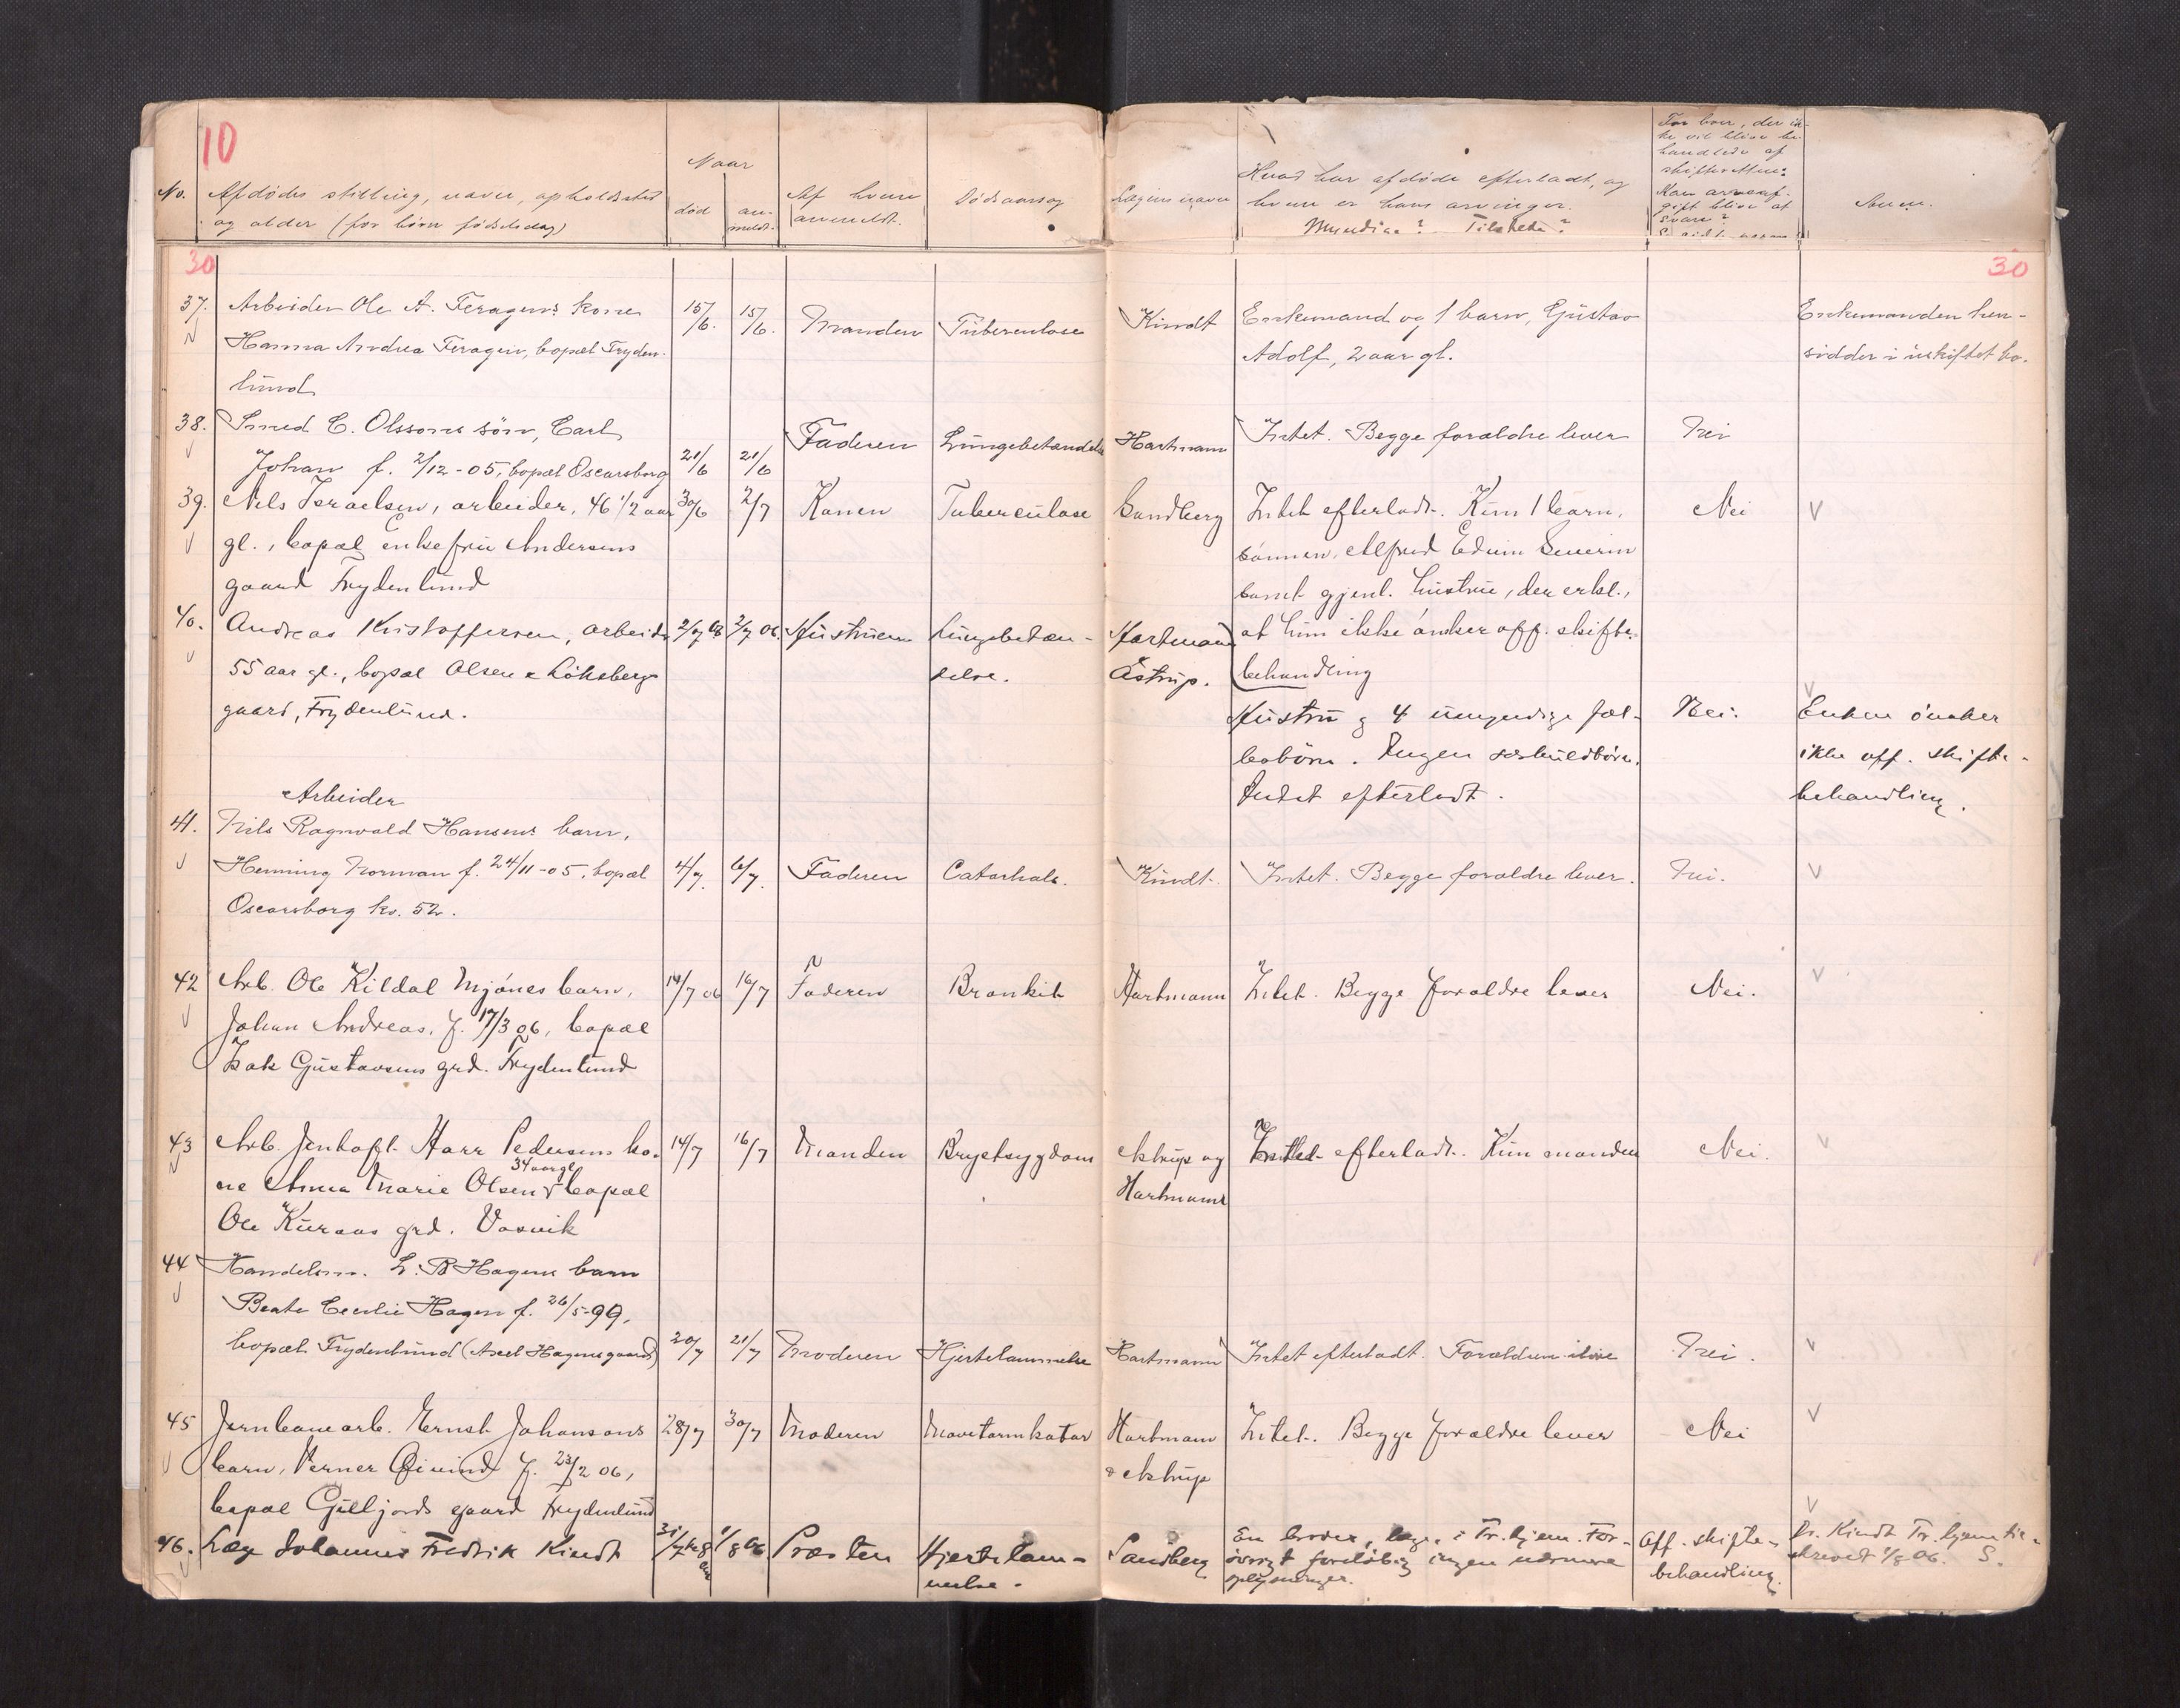 10
No.
Afdødes stilling, navn, opholdssted
og alder (for børn fødselsdag)
Naar
død
an-
meldt.
Af hvem
anmeldt.
Dødsaarsag
Lægens navn
Hvad har afdøde efterladt, og
hvem er hans arvinger.
Myndige? Tilstede?
For boer, der ik-
ke vil blive be-
handlede af
skifteretten:
Kan arveaf-
gift blive at
svare?
Anm.
30
30
37. Arbeider Ole A. Feragens kone
Hanna Andrea Feragen, bopæl Fryden-
lund
15/6. 15/6. Manden Tuberculose Kindt
Enkemand og 1 barn, Gustav
Adolf, 2 aar gl.
Enkemanden hen-
sidder i uskiftet bo.
38. Smed C. Olssons søn, Carl
Johan f. 2/12-05, bopæl Oscarsborg
21/6 21/6 Faderen Lungebetændelse Hartmann
Intet. Begge forældre lever Nei
39. Nils Israelsen, arbeider, 46 1/2 aar
gl., bopæl enkefru Andersens
gaard Frydenlund
30/6 2/7 Konen Tuberculose Sandberg
Intet efterladt. Kun 1 barn,
sønnen, Alfred Edvin Severin
samt gjenl. hustru, der erkl.,
at hun ikke ønsker off. skifte-
behandling
Nei
40. Andreas Kristoffersen, arbeider
55 aar gl., bopæl Olsen & Løksberg
gaard, Frydenlund.
2/7 2/7 06. Hustruen Lungebetæn-
delse.
Hartmann
Astrup.
Hustru og 4 umyndige fæl-
lesbørn. Ingen særkuldbørn.
Intet efterladt.
Nei.
Enken ønsker
ikke off. skifte-
behandling.
Arbeider
41. Nils Ragnvald Hansens barn,
Henning Norman f. 24/11-05, bopæl
Oscarsborg kv. 52.
4/7. 6/7. Faderen Catarhals. Kindt.
Intet. Begge forældre lever. Nei.
42 Arb. Ole Kildal Mjønes barn,
Johan Andreas, f. 17/3 06, bopæl
Isak Gustavsens grd. Frydenlund
14/7 06 16/7 Faderen Bronkit Hartmann
Intet. Begge forældre lever Nei.
43 Arb. Harr Pedersens ko-
34 aar gl.
ne Anna Marie Olsen bopæl
Ole Kuraas grd. Vasvik
14/7 16/7 Manden Brystsygdom Astrup og
Hartmann
Intet efterladt. Kun manden Nei.
44 Handelsm. L. B Hagens barn
Beate Cecilie Hagen f. 26/5-99,
bopæl Frydenlund (Axel Hagens gaard)
20/7 21/7 Moderen Hjertelammelse Hartmann
Intet efterladt. Forældrene ilive Nei.
45 Jernbanearb. Ernst Johansons
barn, Verner Øivind f. 23/2 06,
bopæl Gulljords gaard Frydenlund
28/7 30/7 Moderen Mavetarmkatar Hartmann
& Astrup
Intet. Begge forældre lever Nei
46. Læge Johannes Fredrik Kindt
31/7 1/8 06 Præsten Hjertelam-
melse.
Sandberg
En broder, læge, i Tr.hjem. For-
øvrigt foreløbig ingen nærmere
oplysninger.
Off. skifte-
behandling.
Dr. Kindt Tr.hjem til-
skrevet 1/8 06. S.